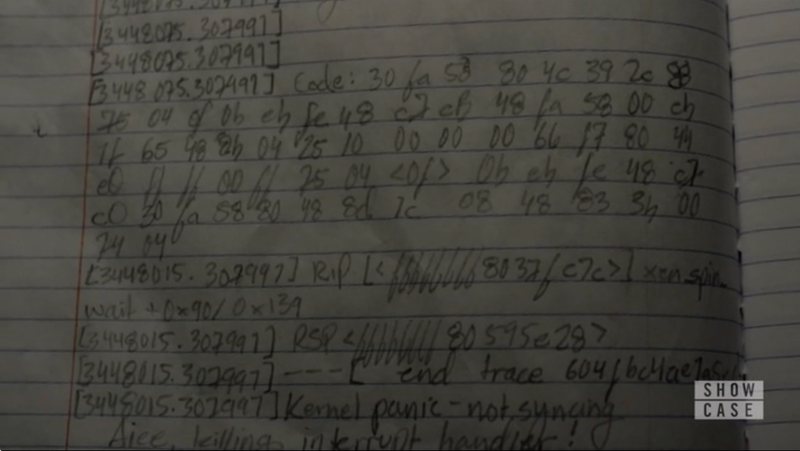 [3448075.307991]
[3448075.307991]
[3448075.307991]
[3448075.307991] Code: 30 fa 58 80 4c 39 2c 88
75 04 0f 0b eb fe 48 c7 c0 48 fa 58 00 ch
1f 65 48 8b 04 25 10 00 00 00 66 f7 80 44
e0 ff ff 00 ff 75 04 <0f> 0b eb fe 48 c7
c0 30 fa 58 80 48 8d 1c 08 48 83 3b 00
74 04
[3448015.307997] RIP [<ffffffff8037fc7c>] xen_spin_
wait + 0x90/0x139
[3448015.307997] RSP <ffffffff80595e28>
[3448015.307997] ----[ end trace 604fbc4ae7a5
[3448015.307997] Kernel panic - not syncing
Aiee, killing interrupt handler!
SHOW
CASE